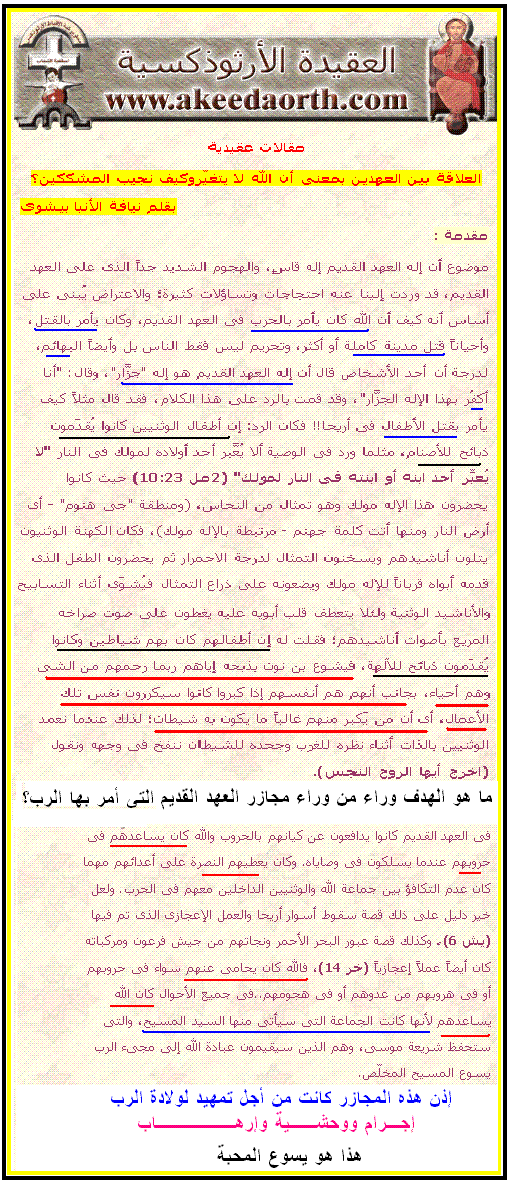 العقيدة الأرثوذكسية
www.akeedaorth.com
مقالات عقيدية
العلاقة بين العهدين بمعنى أن الله لا يتغيّر وكيف نجيب المشككين؟
بقلم نيافة الأنبا بيشوى
مقدمة :
موضوع أن إله العهد القديم إله قاسٍ، والهجوم الشديد جداً الذى على العهد
القديم، قد وردت إلينا عنه احتجاجات وتساؤلات كثيرة؛ والاعتراض يُبنى على
أساس أنه كيف أن الله كان يأمر بالحرب فى العهد القديم، وكان يأمر بالقتل،
وأحياناً قتل مدينة كاملة أو أكثر، وتحريم ليس فقط الناس بل وأيضاً البهائم،
لدرجة أن أحد الأشخاص قال أن إله العهد القديم هو إله "جزَّار"، وقال: "أنا
أكفُر بهذا الإله الجزَّار"، وقد قمت بالرد على هذا الكلام، فقد قال مثلاً كيف
يأمر بقتل الأطفال فى أريحا!! فكان الرد: إن أطفال الوثنيين كانوا يُقدّمون
ذبائح للأصنام، مثلما ورد فى الوصية ألا يُعَّبر أحد أولاده لمولك فى النار "لا
يُعبِّر أحد ابنه أو ابنته فى النار لمولك" (2مل 10:23) حيث كانوا
يحضرون هذا الإله مولك وهو تمثال من النحاس، (ومنطقة "جى هنوم" - أى
أرض النار ومنها أتت كلمة جهنم - مرتبطة بالإله مولك)، فكان الكهنة الوثنيون
يتلون أناشيدهم ويسخنون التمثال لدرجة الاحمرار ثم يحضرون الطفل الذى
قدمه أبواه قرباناً للإله مولك ويضعونه على ذراع التمثال فيُشوَى أثناء التسابيح
والأناشيد الوثنية ولئلا يتعطف قلب أبويه عليه يغطون على صوت صراخه
المريع بأصوات أناشيدهم؛ فقلت له إن أطفالهم كان بهم شياطين وكانوا
يُقدّمون ذبائح للآلهة، فيشوع بن نون بذبحه إياهم ربما رحمهم من الشى
وهم أحياء، بجانب أنهم هم أنفسهم إذا كبروا كانوا سيكررون نفس تلك
الأعمال، أى أن من يَكبر منهم غالباً ما يكون به شيطان؛ لذلك عندما نعمد
الوثنيين بالذات أثناء نظره للغرب وجحده للشيطان ننفخ فى وجهه ونقول
(اخرج أيها الروح النجس).
ما هو الهدف وراء من وراء مجازر العهد القديم التى أمر بها الرب؟
فى العهد القديم كانوا يدافعون عن كيانهم بالحروب والله كان يساعدهَم فى
حروبهم عندما يسلكون فى وصاياه. وكان يعطيهم النصرة على أعدائهم مهما
كان عدم التكافؤ بين جماعة الله والوثنيين الداخلين معهم فى الحرب. ولعل
خير دليل على ذلك قصة سقوط أسوار أريحا والعمل الإعجازى الذى تم فيها
(يش 6). وكذلك قصة عبور البحر الأحمر ونجاتهم من جيش فرعون ومركباته
كان أيضاً عملاً إعجازياً (خر 14)، فالله كان يحامى عنهم سواء فى حروبهم
أو فى هروبهم من عدوهم أو فى هجومهم..فى جميع الأحوال كان الله
يساعدهم لأنها كانت الجماعة التى سيأتى منها السيد المسيح، والتى
ستحفظ شريعة موسى، وهم الذين سيقيمون عبادة الله إلى مجىء الرب
يسوع المسيح المخلّص.
إذن هذه المجازر كانت من أجل تمهيد لولادة الرب
إجـــرام ووحشـــــية وإرهـــــــــــــــاب
هذا هو يسوع المحبة